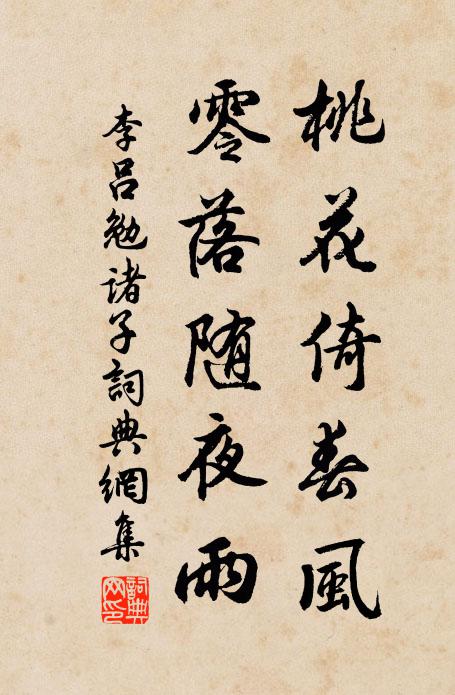 桃花倚春風
零落随夜雨
李呂勉諸子詞典網集
詞典网印